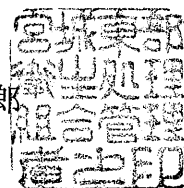 郎
宮城東部
衛生処理
組合管理
者之印